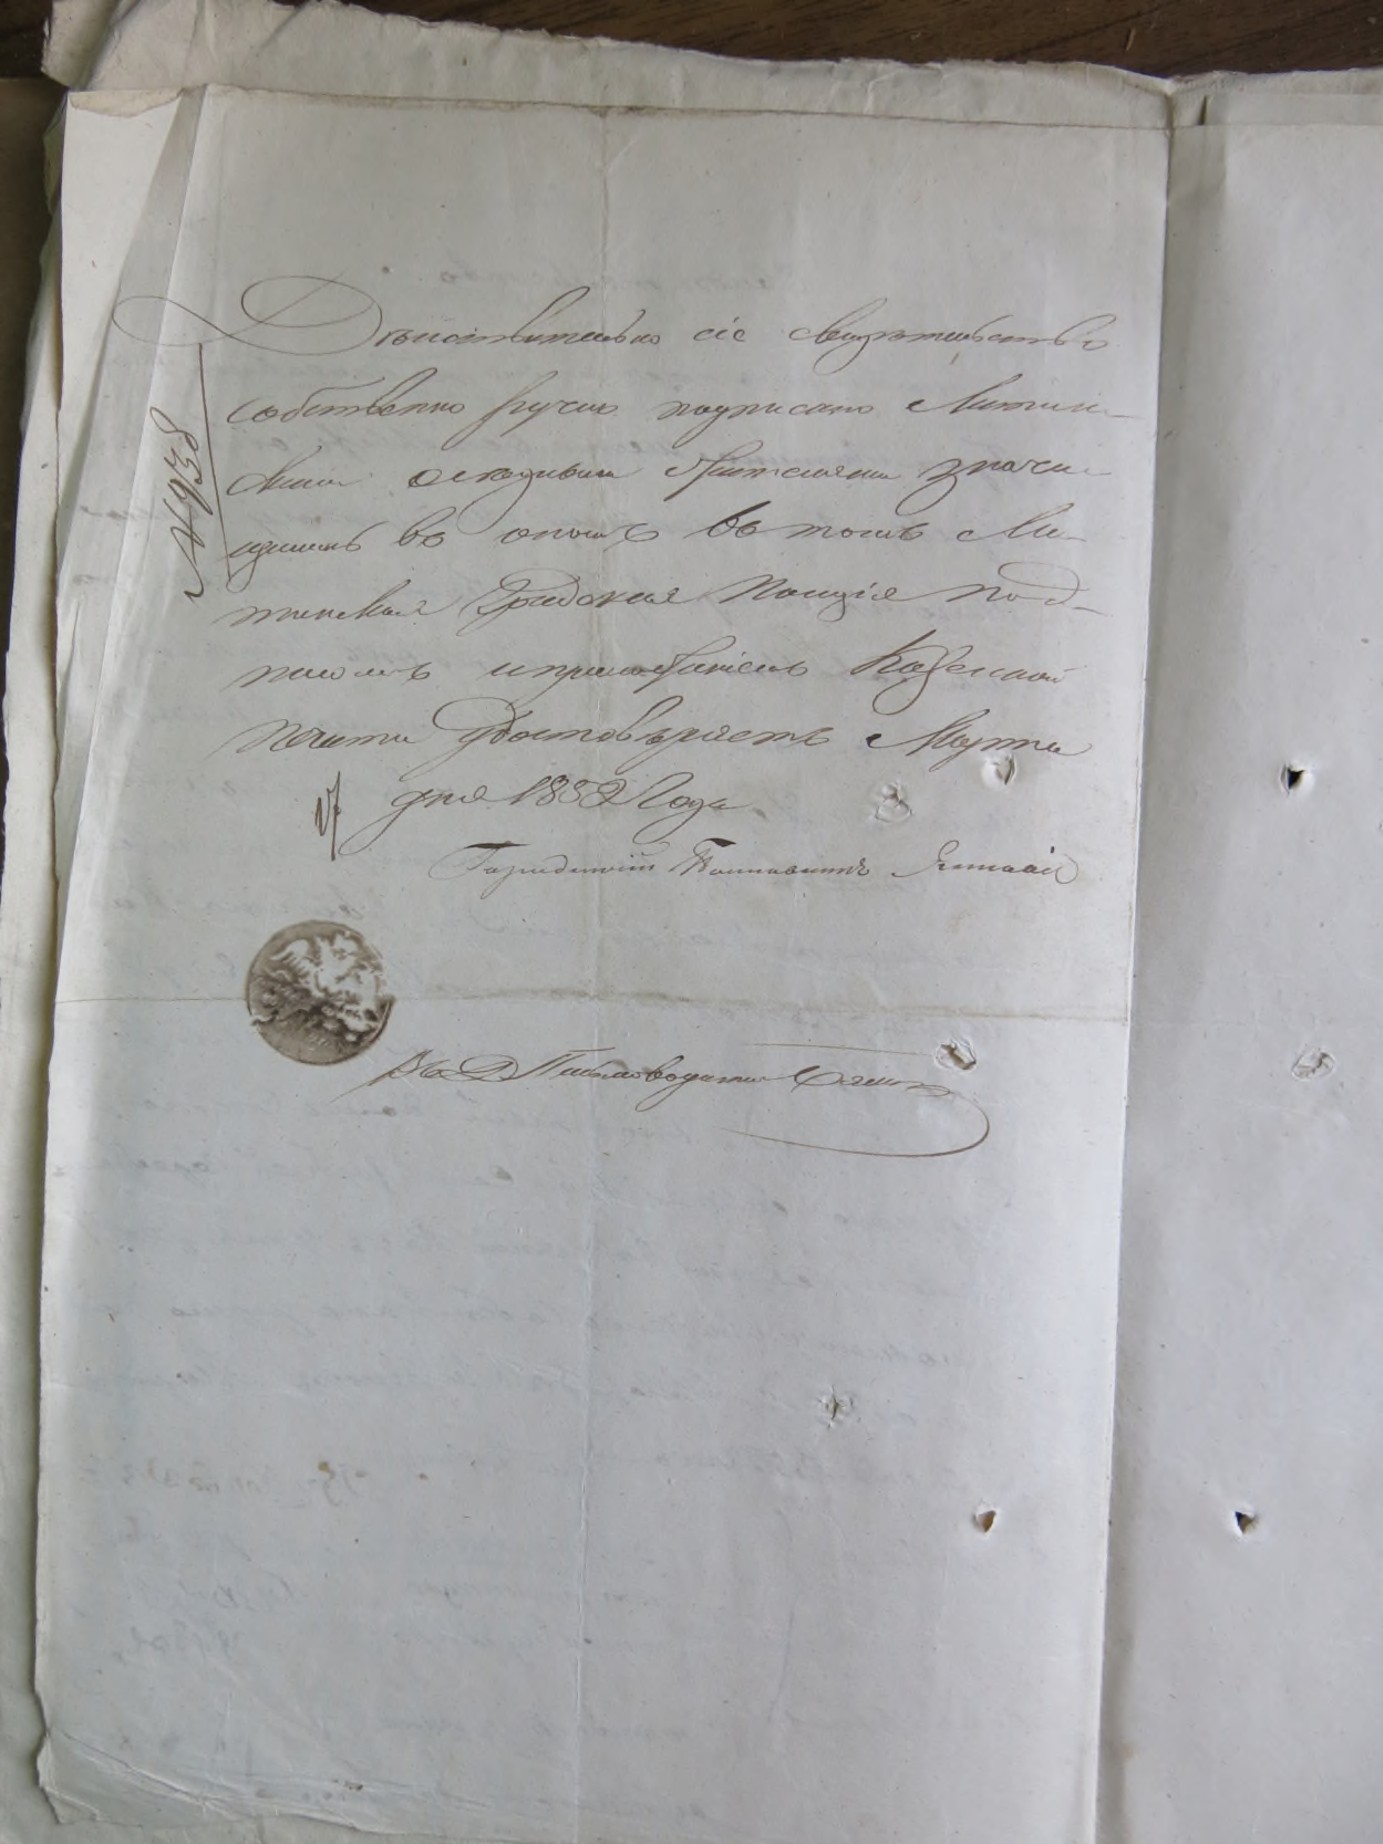 № 938
Дѣйствительно сіе свидѣтельство
собственно ручно подписано Литин-
скими оседлыми жителями значу-
щимись въ ономъ въ томъ Ли-
тинская Градская Полиція под-
писомъ и приложеніемъ Казенной
печати удостовѣряетъ Марта
17 дня 1832 Года
Городничій
Письмоводитель